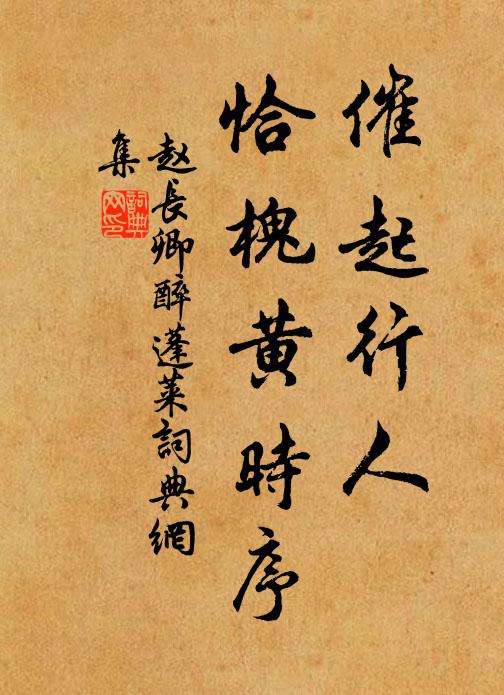 催起行人
恰槐黄時序
赵長卿醉蓬萊詞典網
集
詞典網印